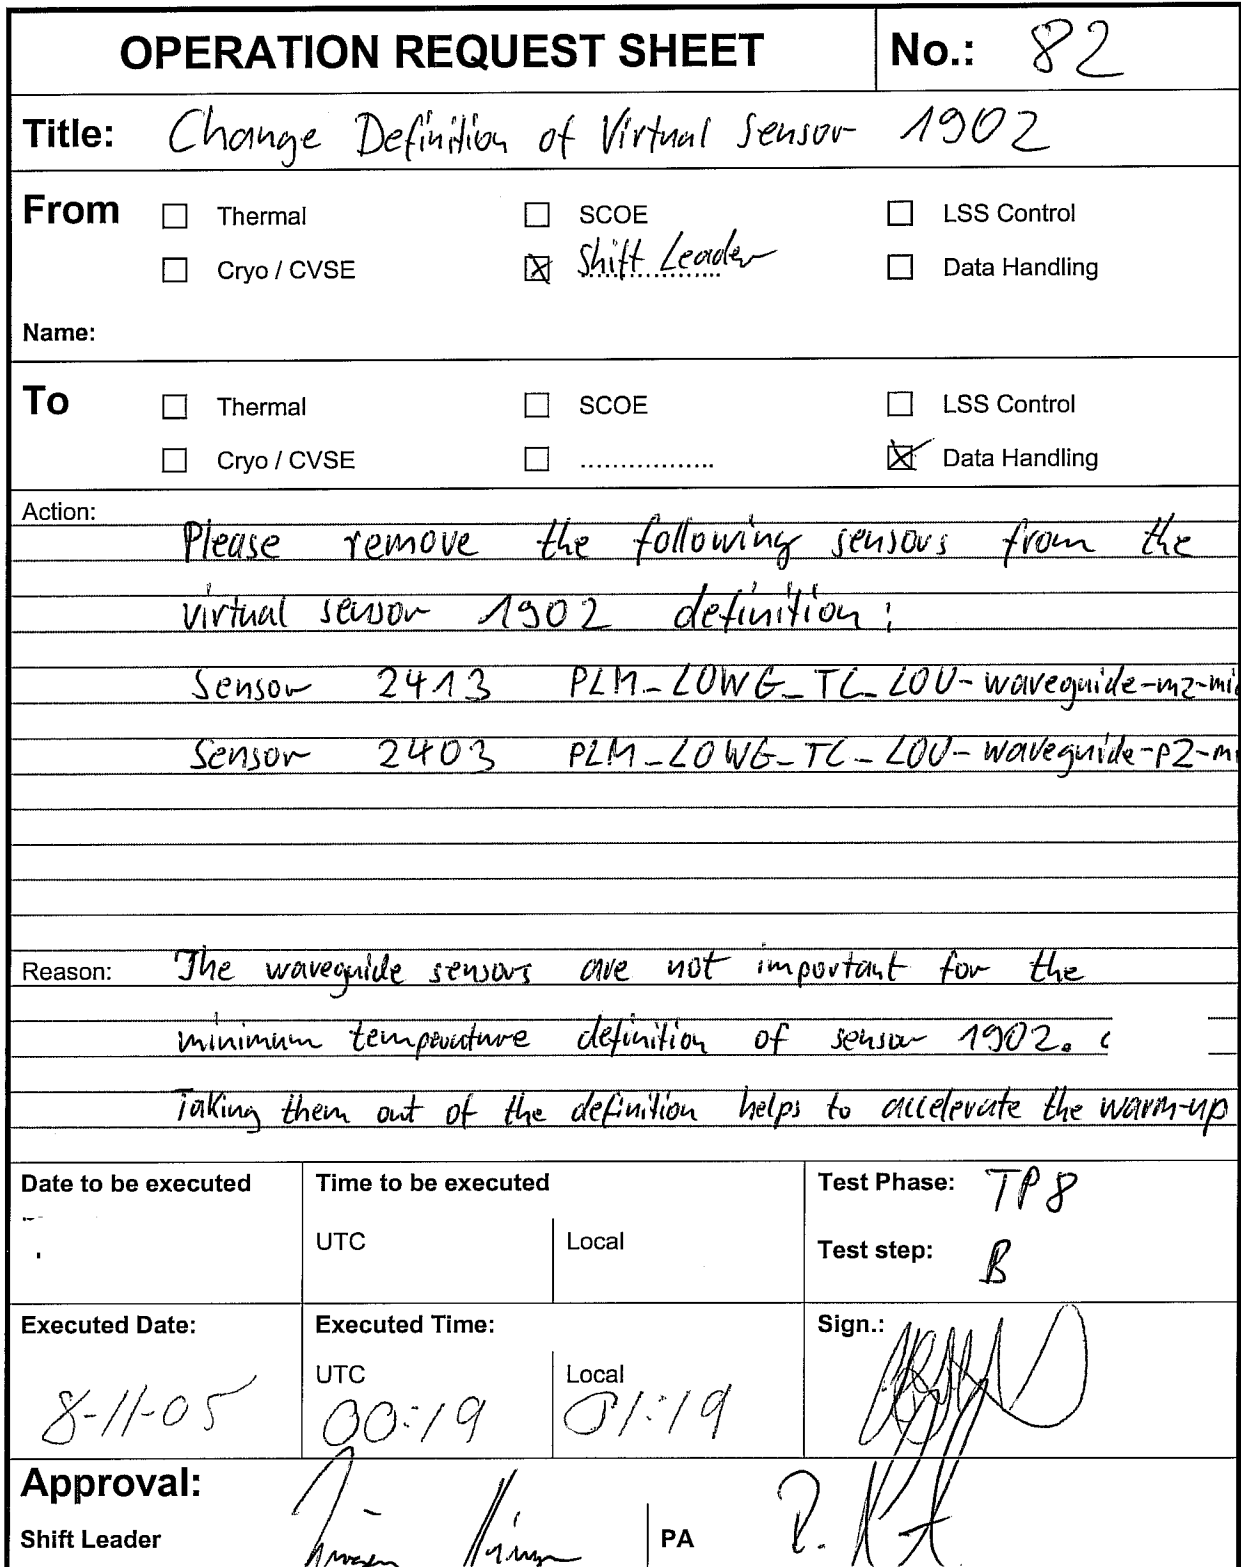 OPERATION REQUEST SHEET No.: 82
Title: Change Definition of Virtual Sensor 1902
From Thermal SCOE LSS Control
Cryo / CVSE Shift Leader Data Handling
Name:
To Thermal SCOE LSS Control
Cryo / CVSE ................. Data Handling
Action:
Please remove the following sensors from the
virtual sensor 1902 definition:
Sensor 2413 PLM_LOWG_TC_LOU-waveguide-mz-mi
Sensor 2403 PLM_LOWG_TC_LOU-waveguide-pz-m
Reason: The waveguide sensors are not important for the
minimum temperature definition of sensor 1902.
Taking them out of the definition helps to accelerate the warm-up
Date to be executed Time to be executed Test Phase: TP8
UTC Local
Test step: B
Executed Date: Executed Time: Sign.:
UTC Local
8-11-05 00:19 01:19
Approval:
Shift Leader PA